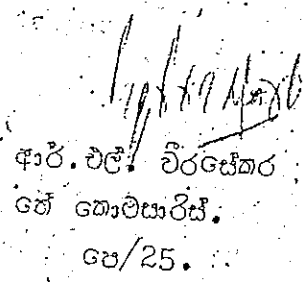 ආර්.එල්. වීරසේකර
තේ කොමසාරිස්.
පෙ/25.